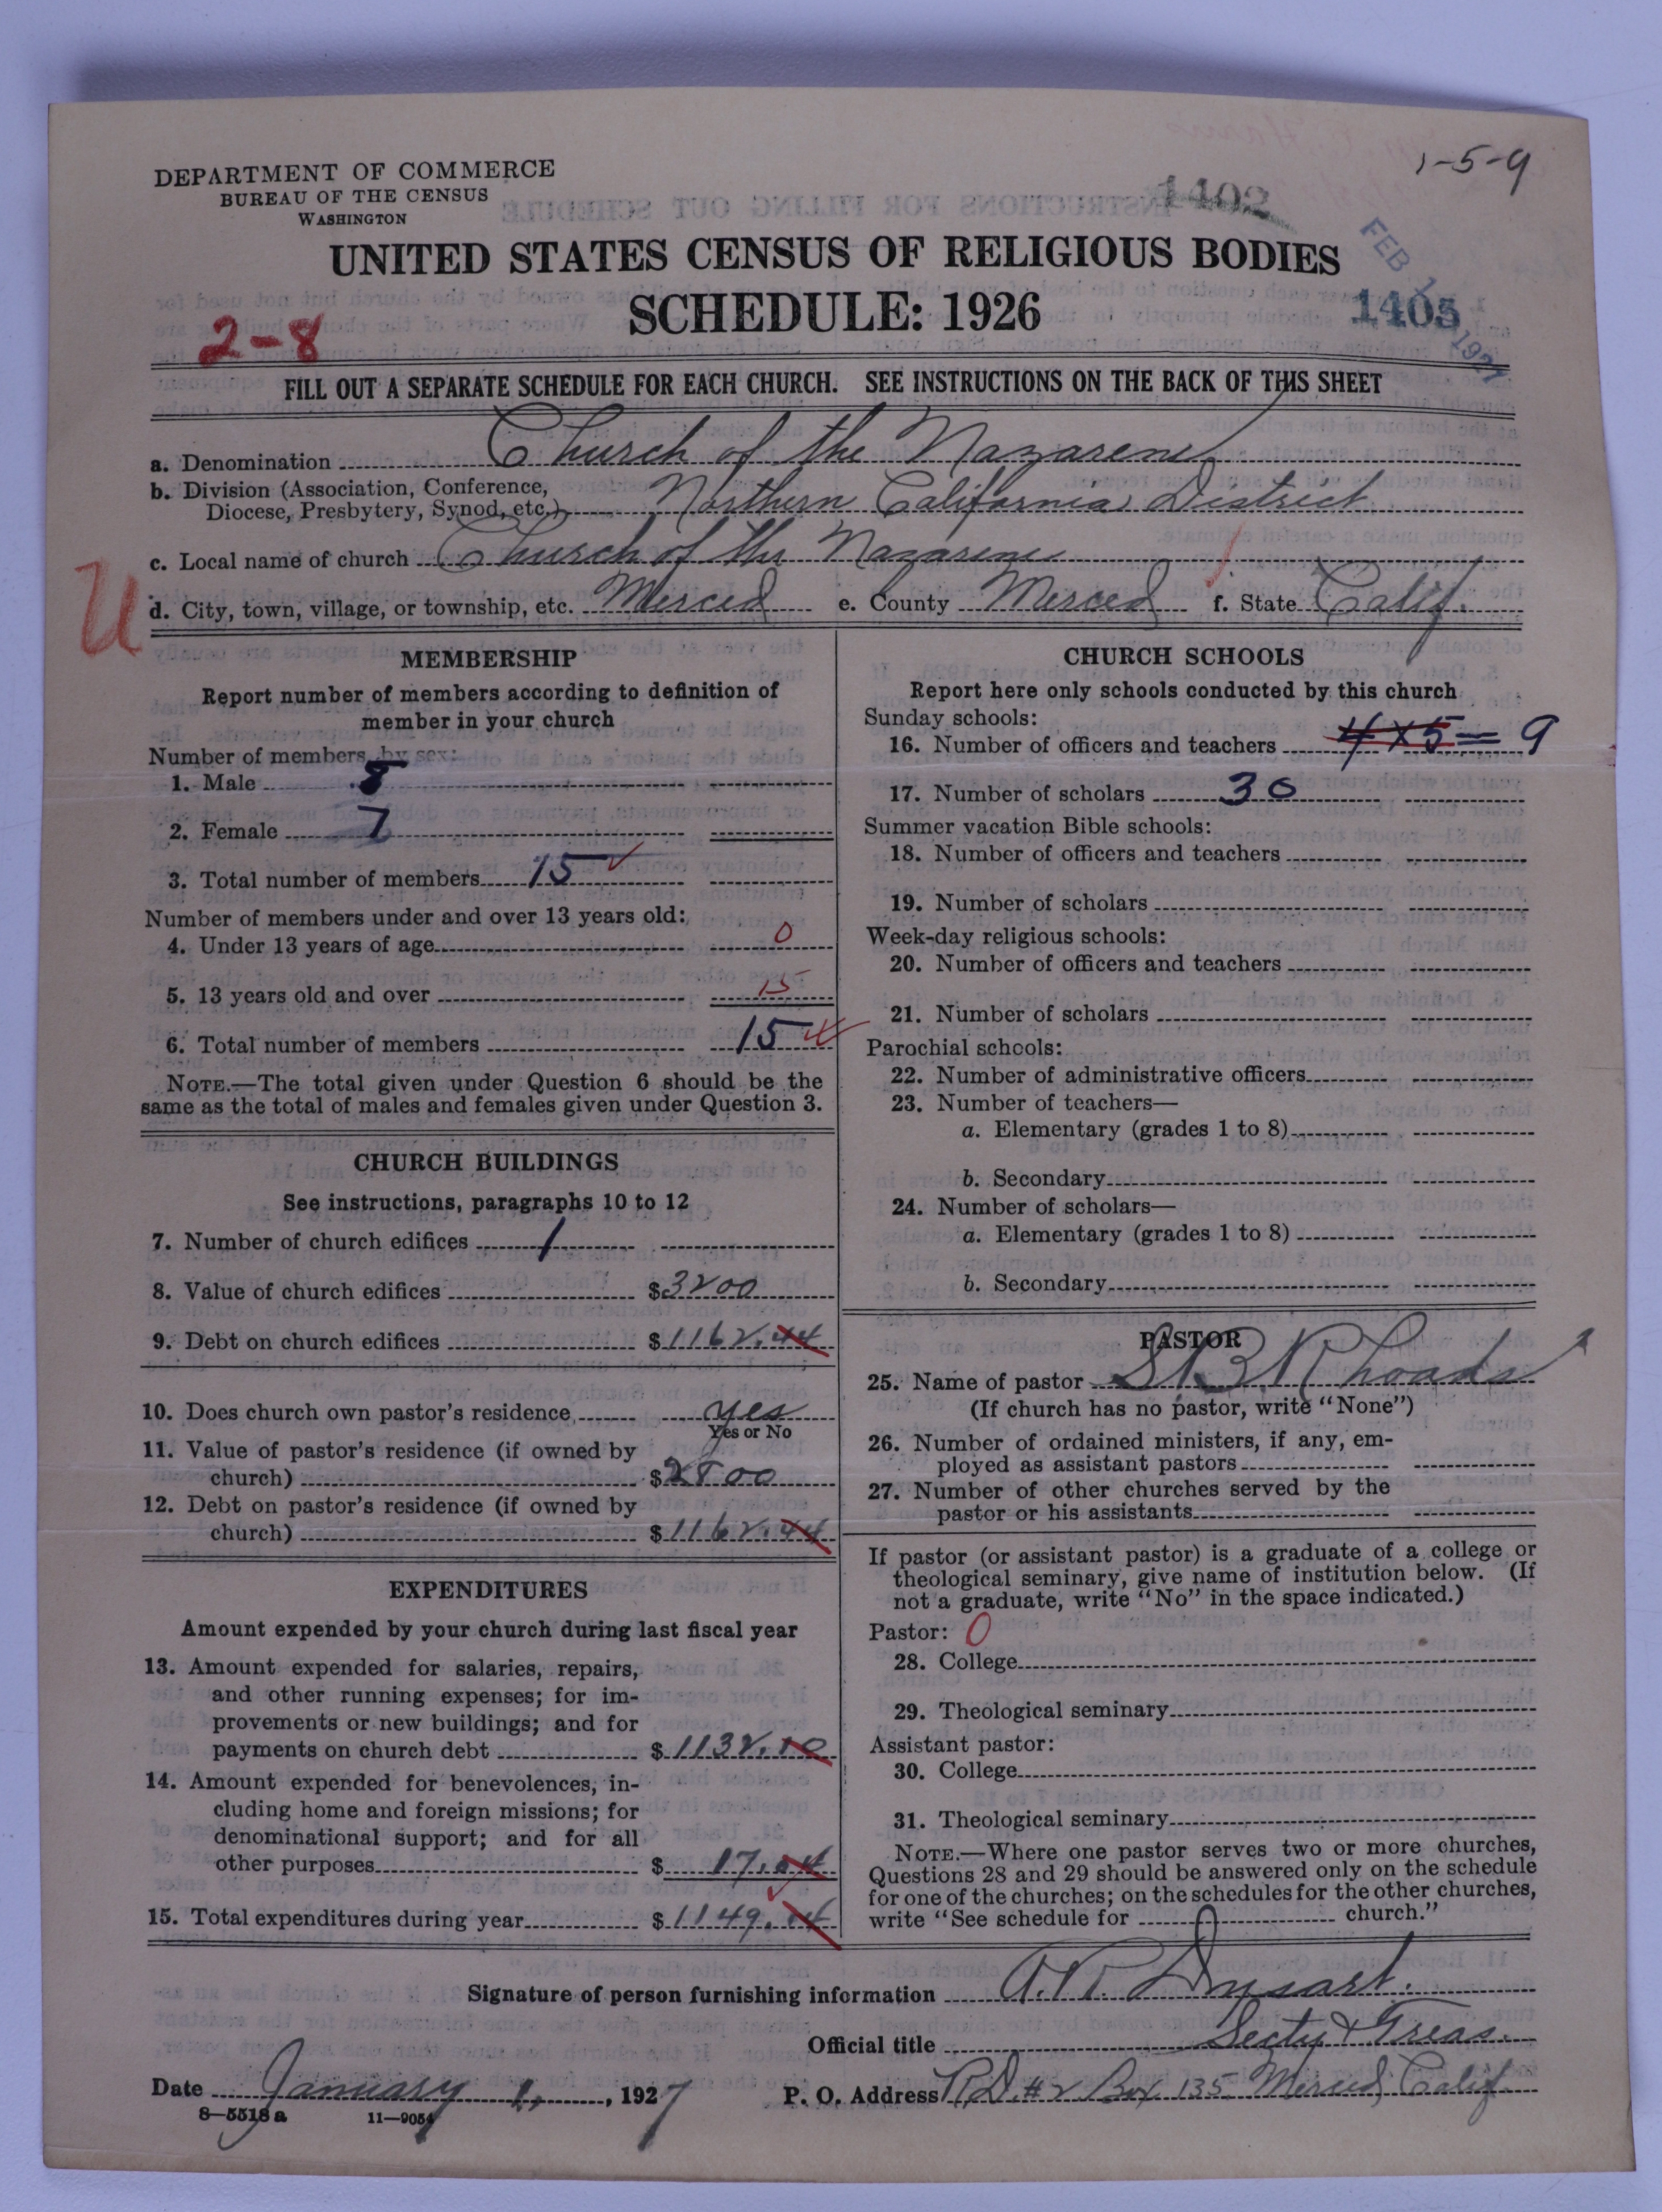 1-5-9
DEPARTMENT OF COMMERCE
BUREAU OF THE CENSUS
WASHINGTON
1402
UNITED STATES CENSUS OF RELIGIOUS BODIES
SCHEDULE: 1926
FEB 1927
1403
2-8
FILL OUT A SEPARATE SCHEDULE FOR EACH CHURCH. SEE INSTRUCTIONS ON THE BACK OF THIS SHEET
a. Denomination Church of the Nazarene
b. Division (Association, Conference,
Diocese, Presbytery, Synod, etc.) Northern California District
c. Local name of church Church of the Nazarene
U
d. City, town, village, or township, etc. Merced e. County Merced f. State Calif.
MEMBERSHIP
Report number of members according to definition of
member in your church
Number of members by sex:
1. Male 8
2. Female 7
3. Total number of members 15
Number of members under and over 13 years old:
4. Under 13 years of age 0
5. 13 years old and over 15
6. Total number of members 15
NOTE.—The total given under Question 6 should be the
same as the total of males and females given under Question 3.
CHURCH BUILDINGS
See instructions, paragraphs 10 to 12
7. Number of church edifices 1
8. Value of church edifices $3200
9. Debt on church edifices $1162.44
10. Does church own pastor's residence yes
Yes or No
11. Value of pastor's residence (if owned by
church) $2800
12. Debt on pastor's residence (if owned by
church) $1162.44
EXPENDITURES
Amount expended by your church during last fiscal year
13. Amount expended for salaries, repairs,
and other running expenses; for im-
provements or new buildings; and for
payments on church debt $1132.10
14. Amount expended for benevolences, in-
cluding home and foreign missions; for
denominational support; and for all
other purposes $17.04
15. Total expenditures during year $1149.14
CHURCH SCHOOLS
Report here only schools conducted by this church
Sunday schools:
16. Number of officers and teachers 4 x 5 = 9
17. Number of scholars 30
Summer vacation Bible schools:
18. Number of officers and teachers
19. Number of scholars
Week-day religious schools:
20. Number of officers and teachers
21. Number of scholars
Parochial schools:
22. Number of administrative officers
23. Number of teachers—
a. Elementary (grades 1 to 8)
b. Secondary
24. Number of scholars—
a. Elementary (grades 1 to 8)
b. Secondary
PASTOR
25. Name of pastor S. B. Rhoads
(If church has no pastor, write "None")
26. Number of ordained ministers, if any, em-
ployed as assistant pastors
27. Number of other churches served by the
pastor or his assistants
If pastor (or assistant pastor) is a graduate of a college or
theological seminary, give name of institution below. (If
not a graduate, write "No" in the space indicated.)
Pastor: 0
28. College
29. Theological seminary
Assistant pastor:
30. College
31. Theological seminary
NOTE.—Where one pastor serves two or more churches,
Questions 28 and 29 should be answered only on the schedule
for one of the churches; on the schedules for the other churches,
write "See schedule for church."
Signature of person furnishing information A. R. Dysart.
Official title Secty & Treas.
Date January 1, 1927 P. O. Address R.D. #2 Box 135 Merced, Calif.
8—5518 a 11—9054